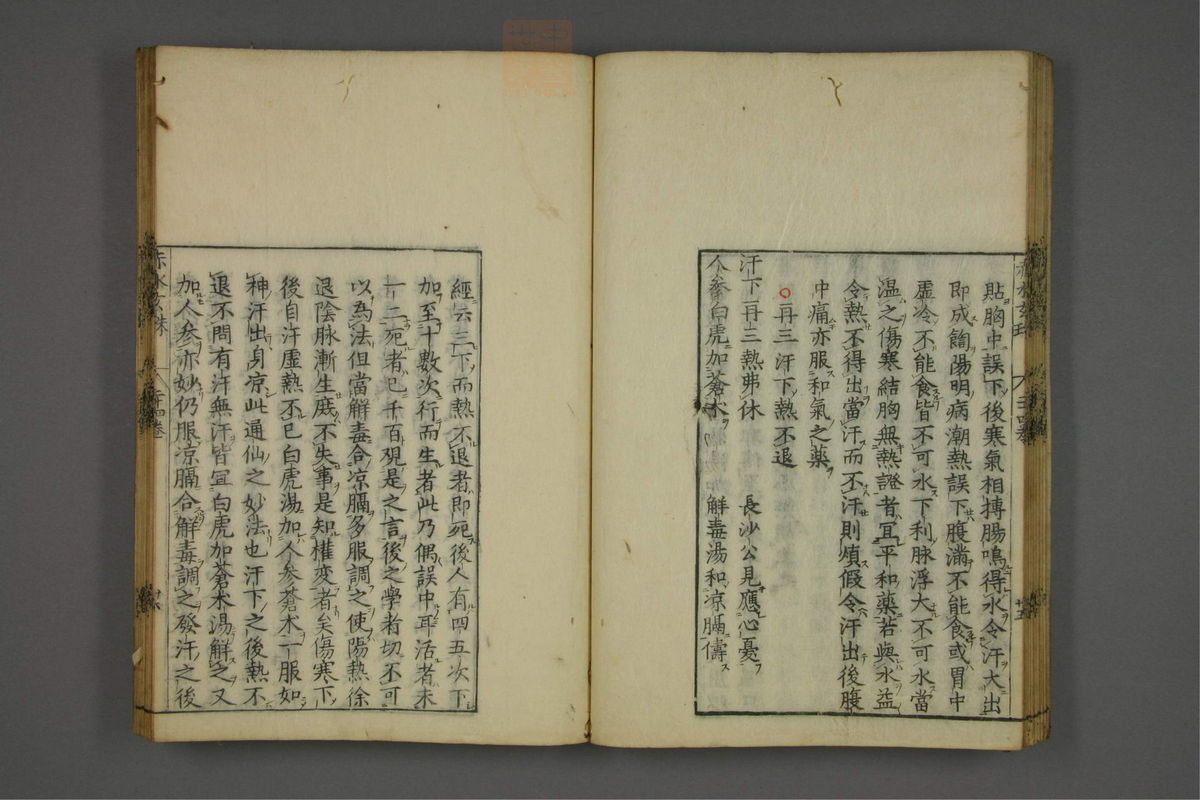 貼胸中誤下後寒氣相搏腸鳴得水令汗大出
即成餾陽明病潮熱誤下腹滿不能食或胃中
虛冷不能食皆不可水下利脉浮大不可水當
温之傷寒結胸無熱證者宜平和藥若與水益
令熱不得出當汗而不汗則煩假令汗出後腹
中痛亦服和氣之藥
○再三汗下熱不退
汗下再三熱弗休　長沙公見應心憂
人參白虎加蒼朮　解毒湯和凉膈儔
經云三下而熱不退者即死後人有四五次下
加至十數次行而生者此乃偶誤中耳活者未
一二死者已千百覌是之言後之學者切不可
以為法但當解毒合凉膈多服調之使陽熱徐
退陰脉漸生庶不失事是知權変者矣傷寒下
後自汗虛熱不已白虎湯加人参蒼朮一服如
神汗出身凉此通仙之妙法也汗下之後熱不
退不問有汗無汗皆宜白虎加蒼朮湯解之又
加人参亦妙仍服凉膈合解毒調之發汗之後
赤水玄珠
二十四卷
廿六